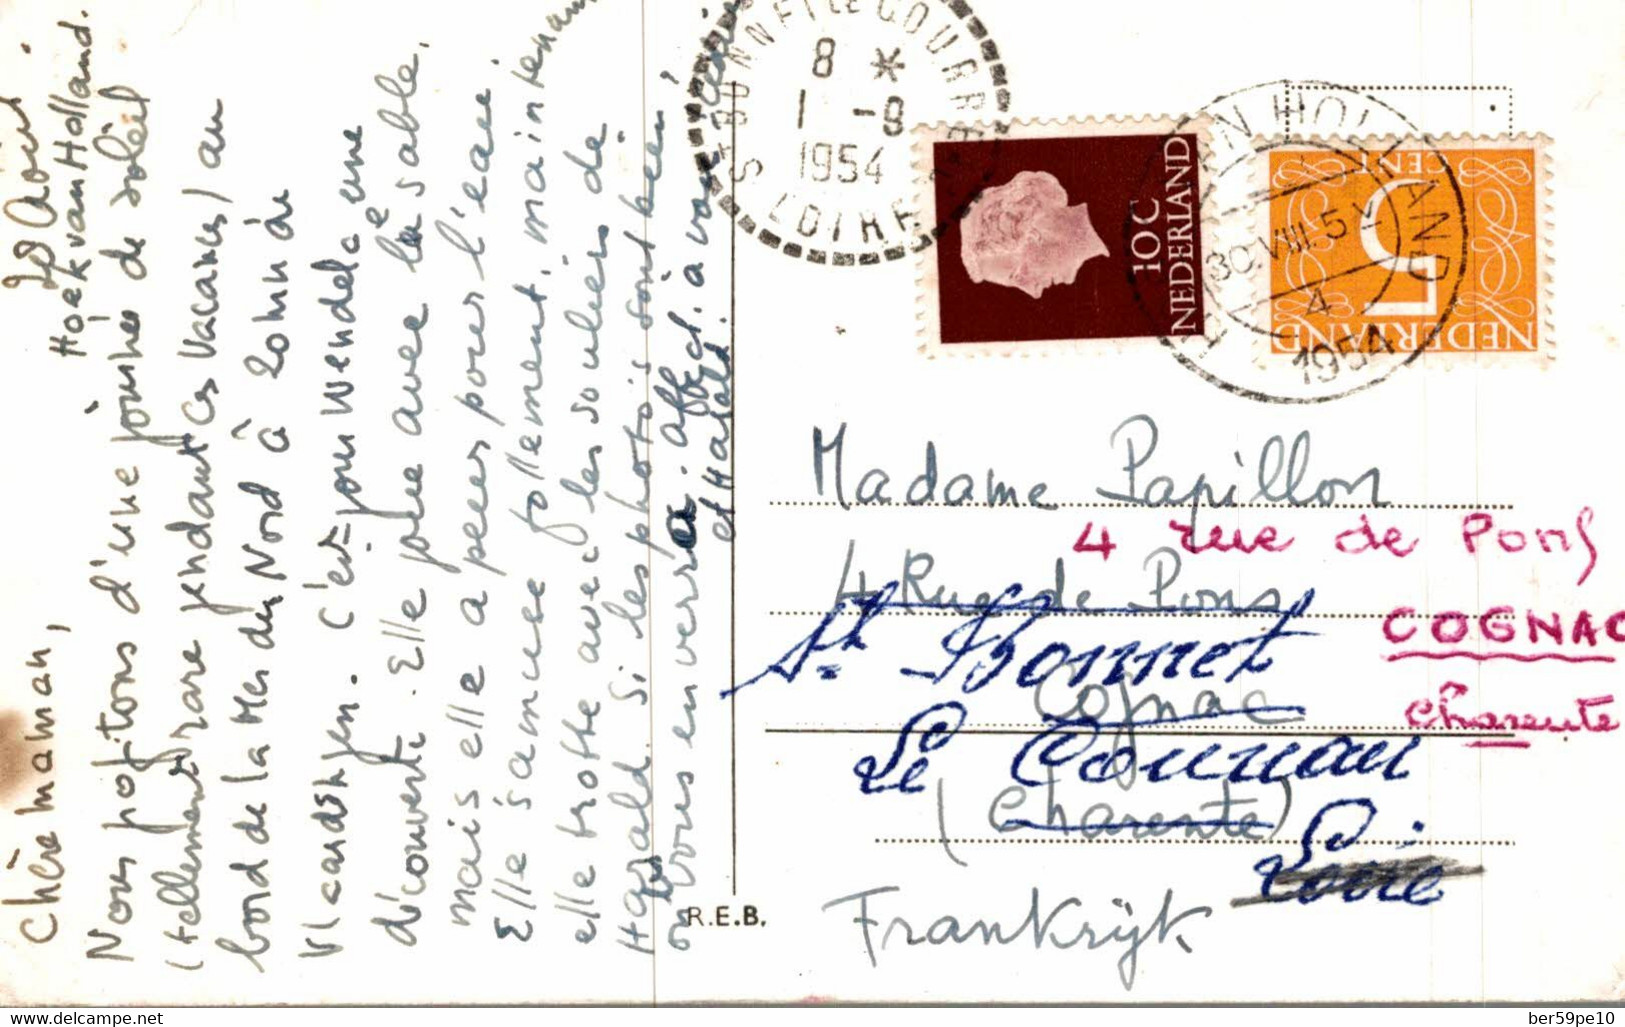 29 Août.
Hoek van Holland.
Chère maman,
Nous profitons d'une journée de soleil
(tellement rare pendant ces vacances) au
bord de la Mer du Nord à 20 min de
Vlaardingen. C'est pour Wendela une
découverte. Elle joue avec le sable,
mais elle a peur pour l'eau
Elle s'amuse follement, maintenant
elle trotte avec les souliers de
Harald. Si les photos sont bien
on vous en verra. affect. à vous
et Harald.
R.E.B.
ST BONNET LE COURREAU
8 *
1 -9
1954
LOIRE
10C
NEDERLAND
HOEK VAN HOLLAND
30.VIII.5
4
1954
5
CENT
NEDERLAND
Madame Papillon
4 Rue de Pons
4 rue de Pons
St Bonnet
COGNAC
Cognac
Charente
Le Courreau
(Charente)
Loire
Frankrijk
www.delcampe.net
ber59pe10